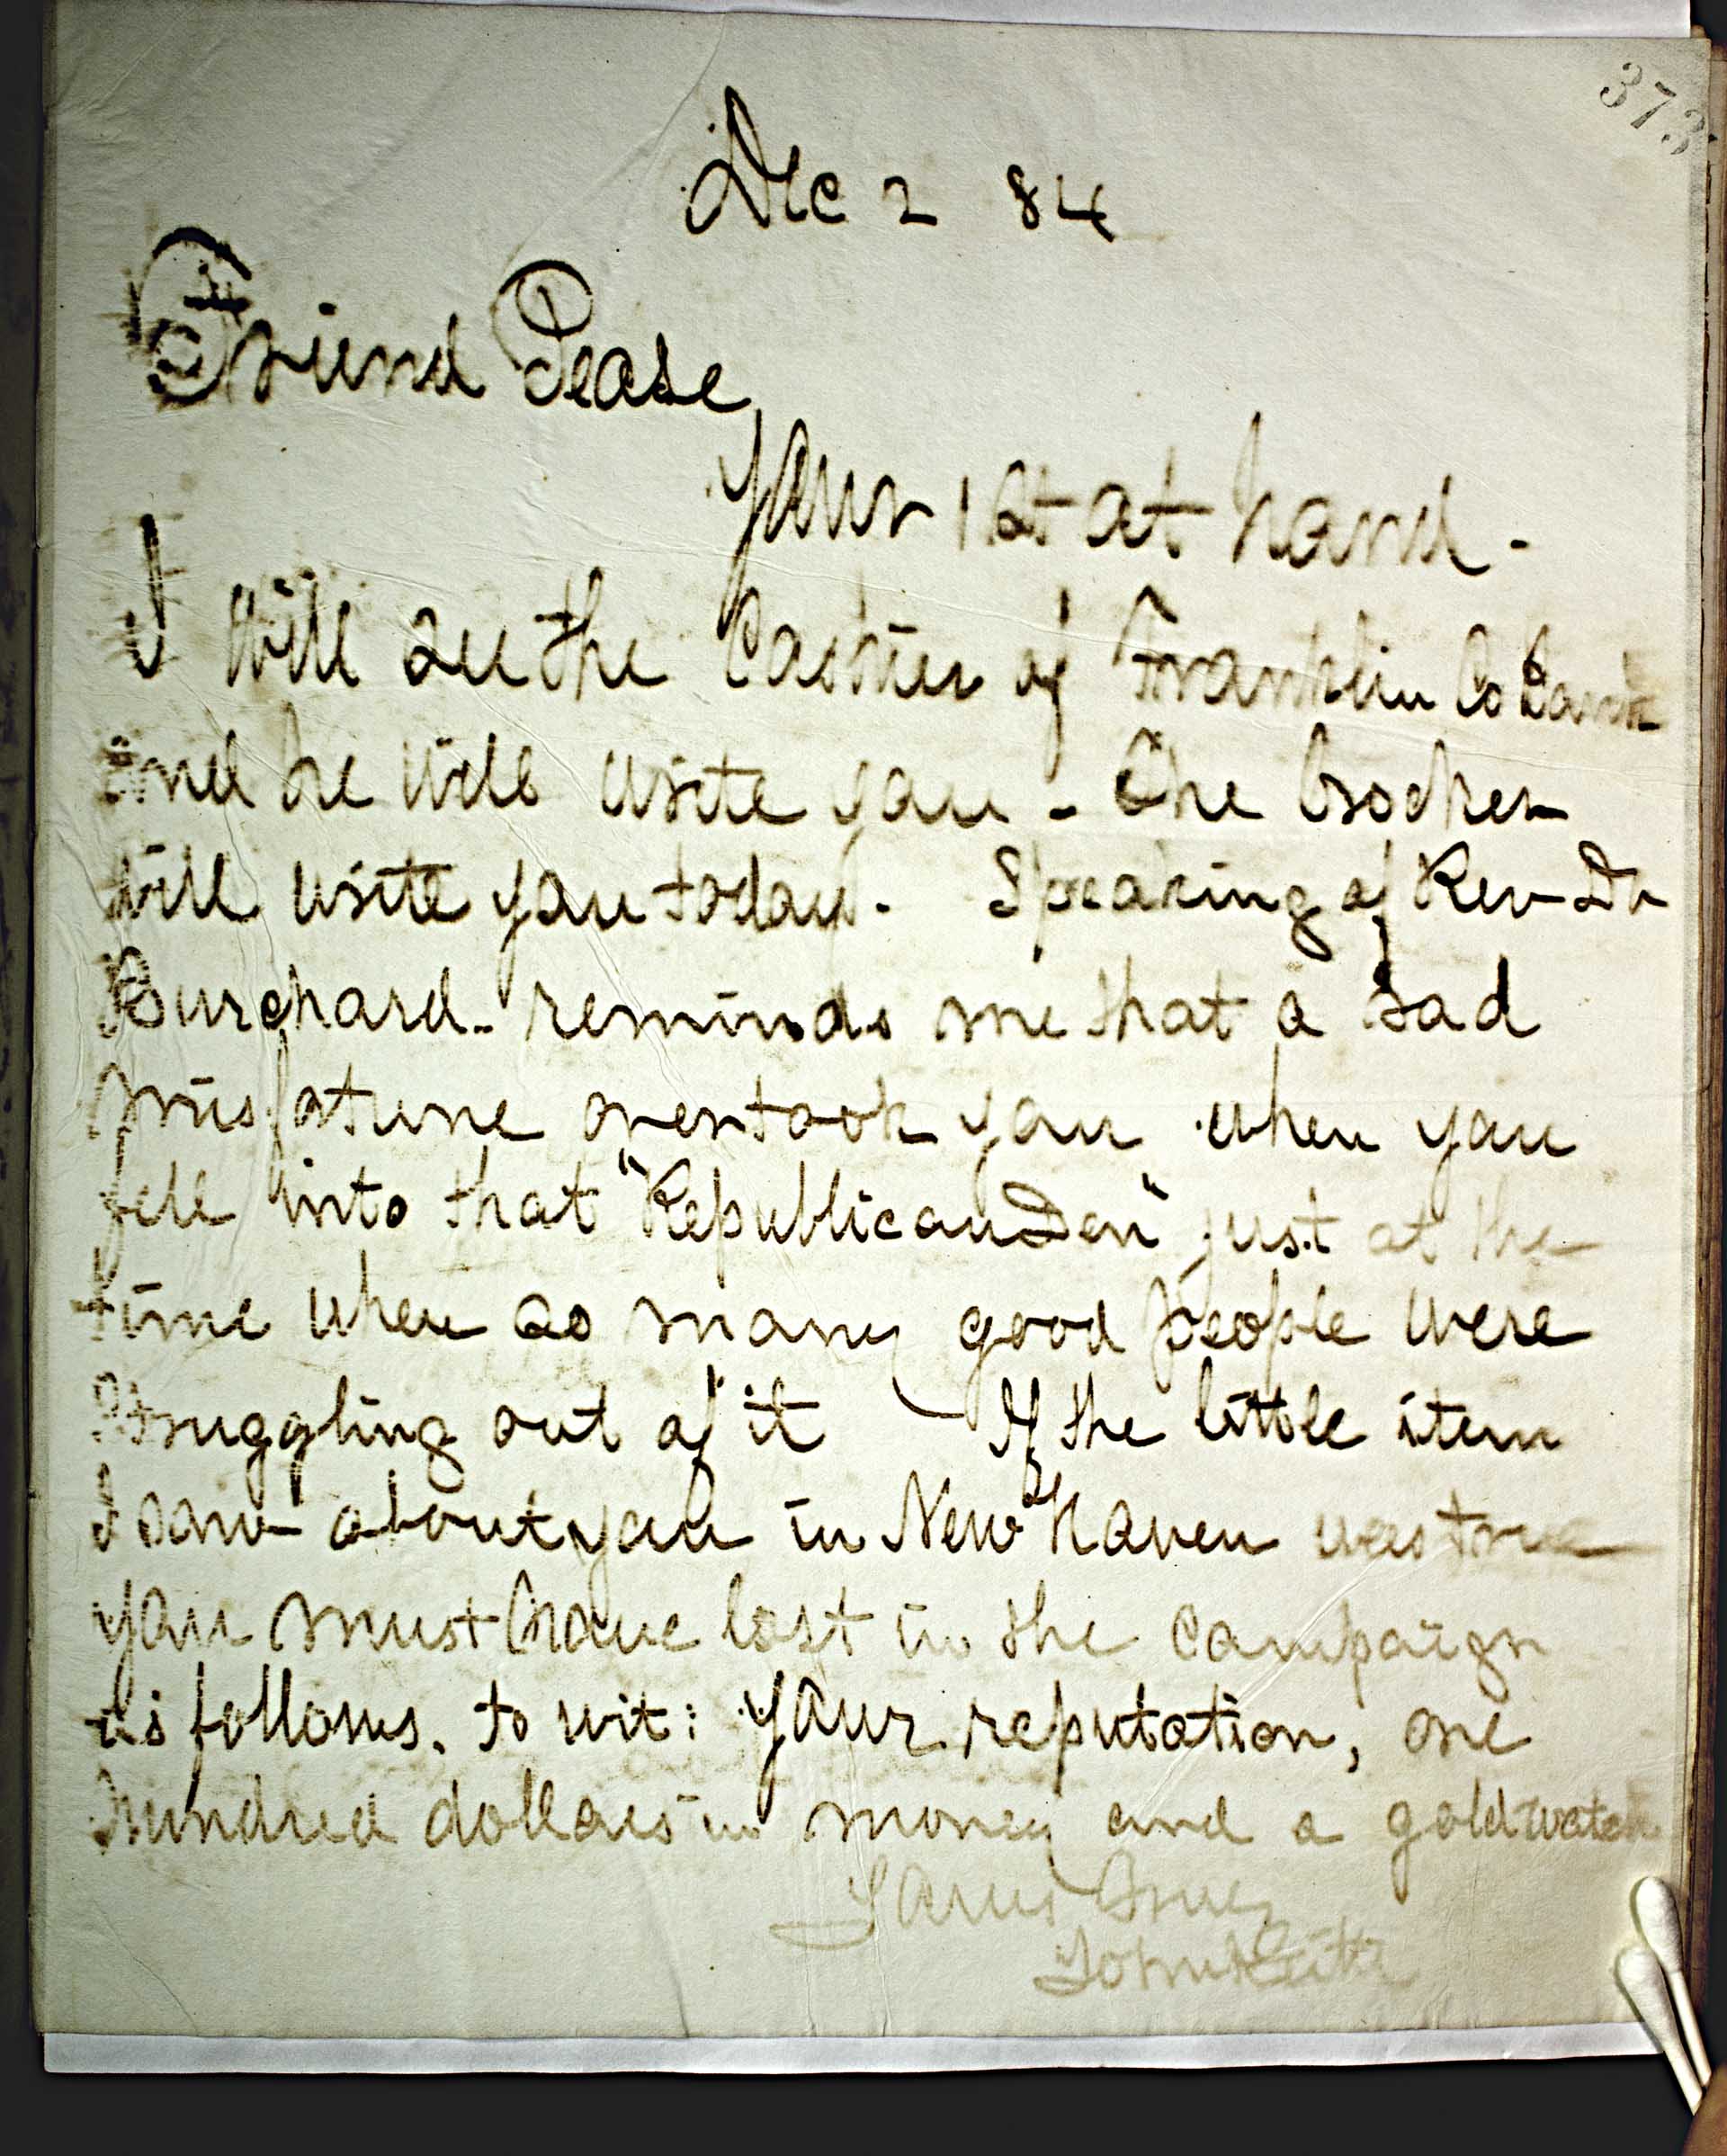 373
Dec 2 84
Friend Pease,
Your 1st at hand -
I will see the Cashier of Franklin Co Bank
and he will write you - One
will write you today - Speaking of Rev Dr
Burchard - reminds me that a sad
misfotune overtook you when you
fell into that "Republican Den" just at the
time when so many good people were
struggling out of it If the little item
I saw about you in New Haven was true
you must have lost in the campaign
as follows, to wit: your reputation, one
hundred dollars in money and a gold watch
Yours Truly
John